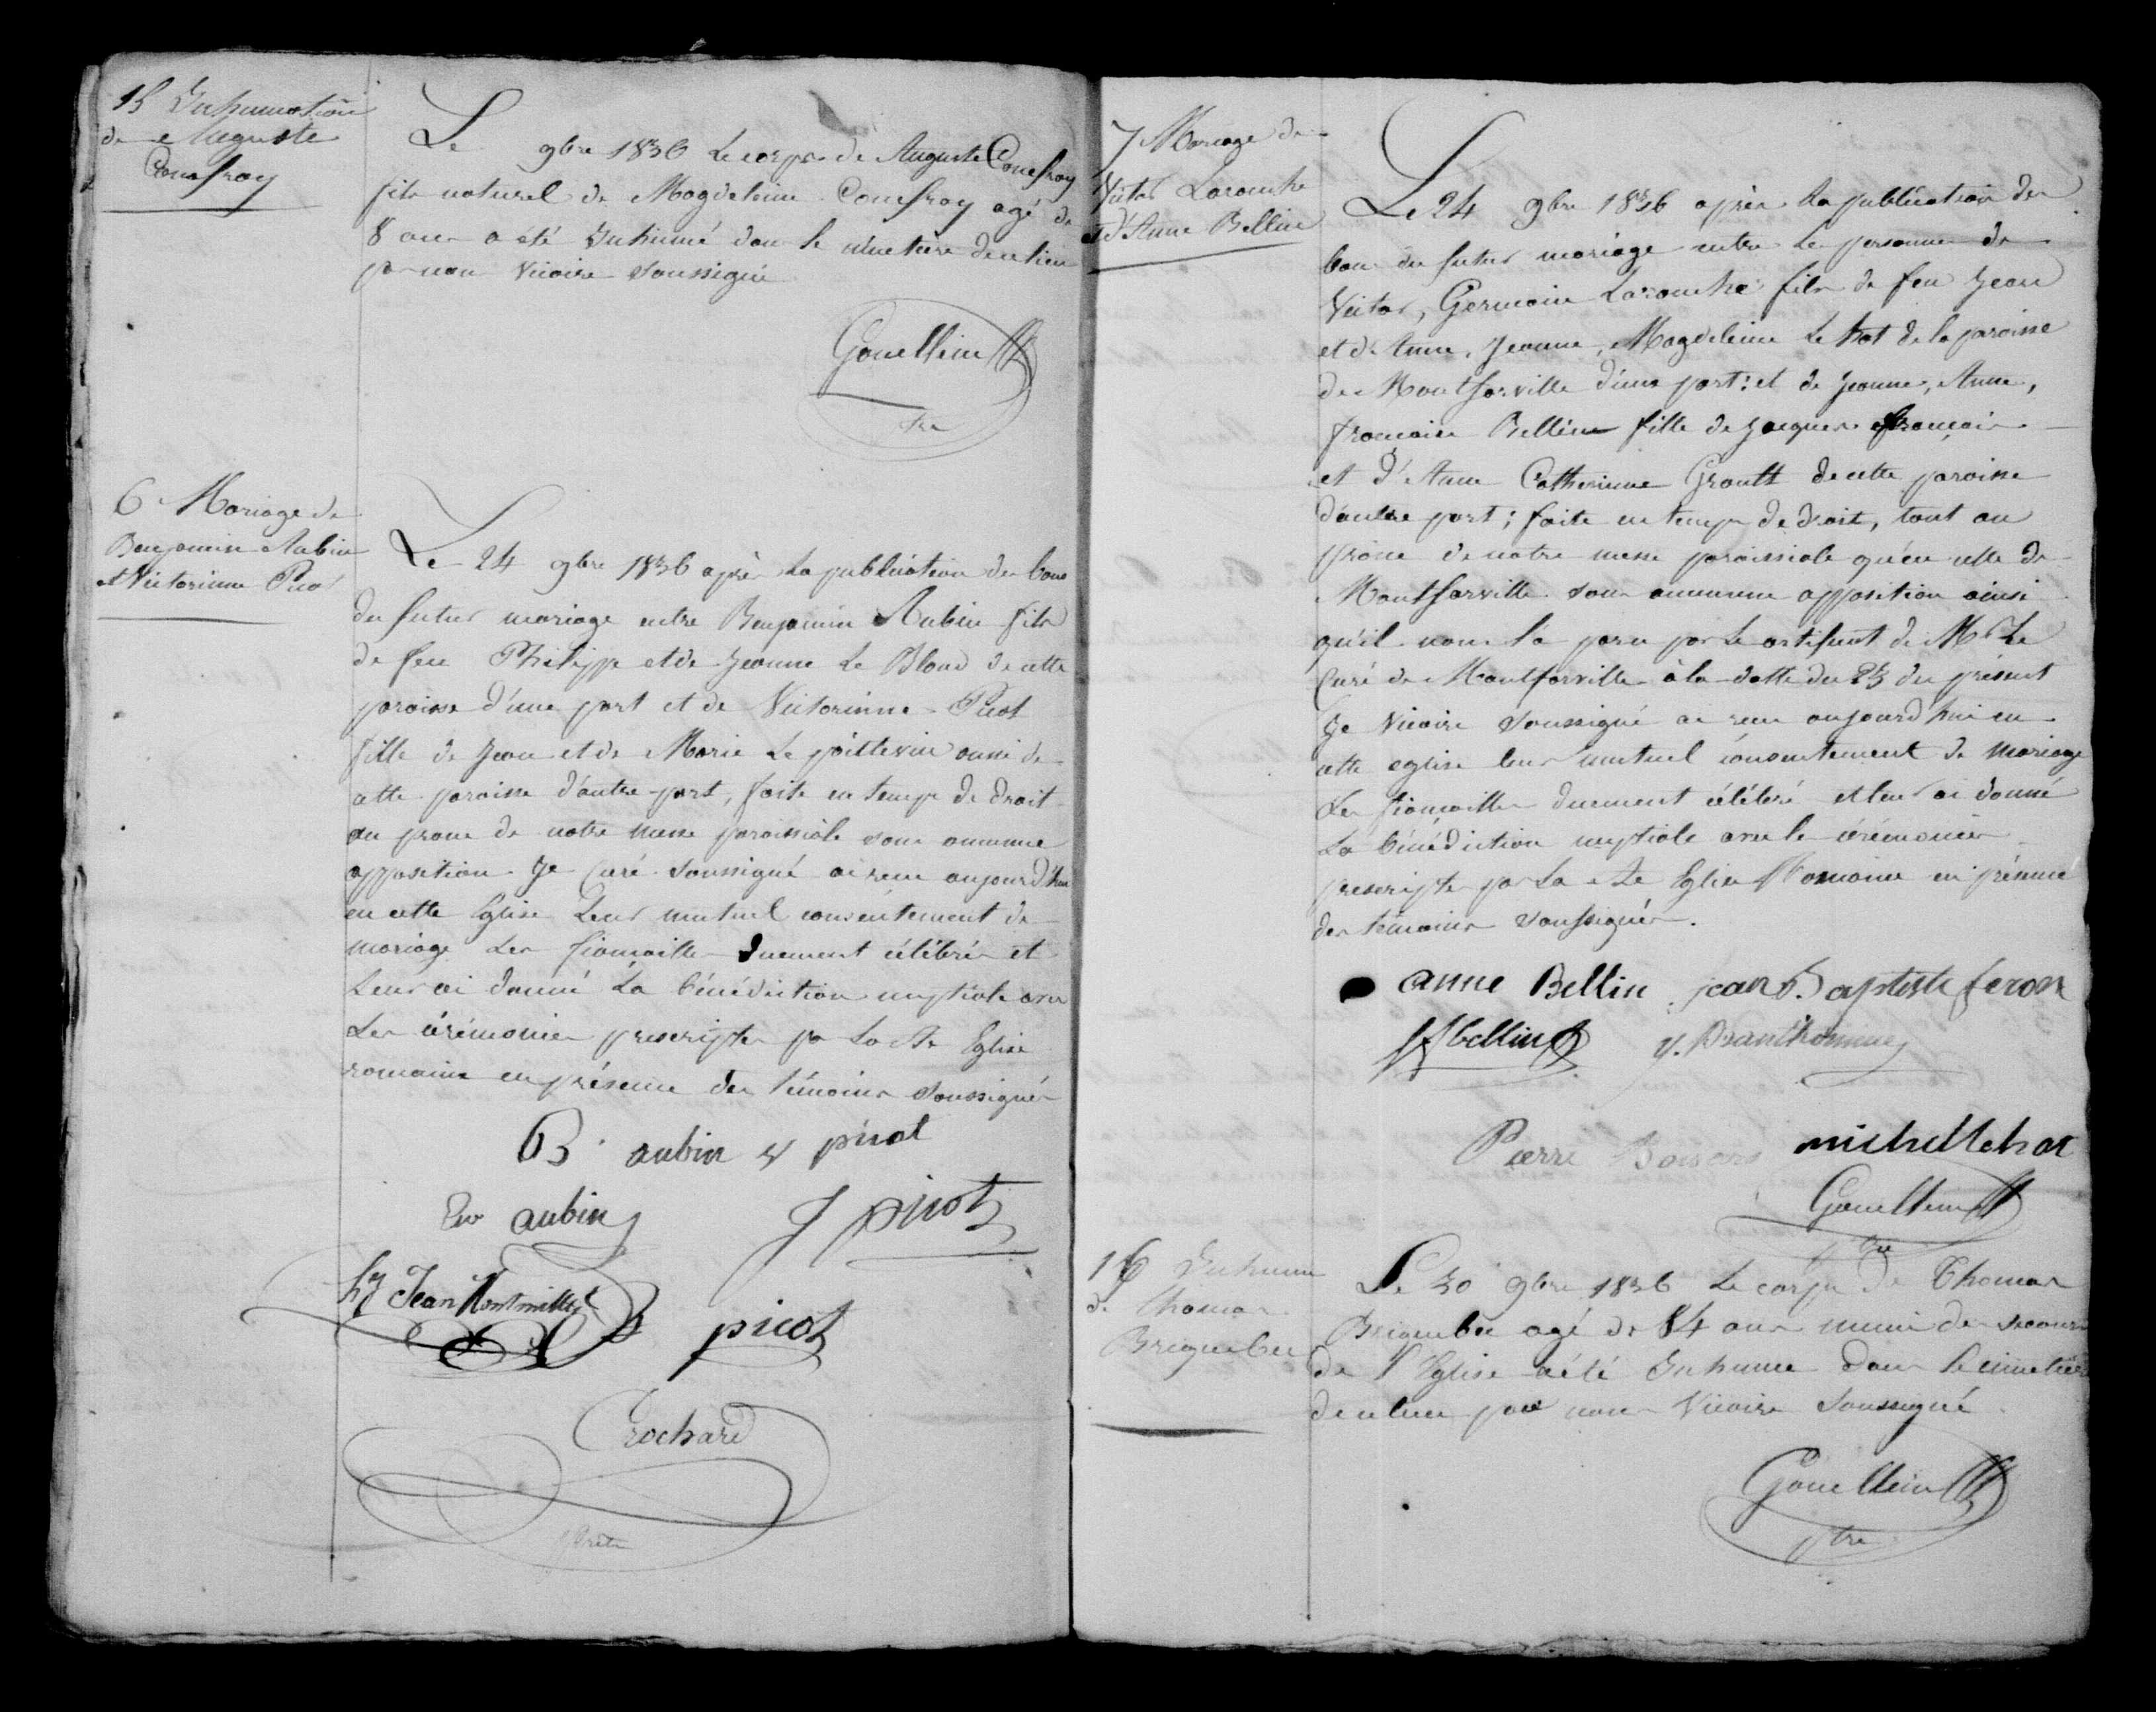 15 Inhumation
de Auguste
Couefroy
Le 9bre 1836 Le corps de Auguste Couefroy
fils naturel de Magdeleine Couefroy agé de
8 ans a été Inhumé dans le cimetiere de ce lieu
par nous Vicaire soussigné
Gouellain
ptre
6 Mariage de
Benjamin Aubin
et Victorinne Picot
Le 24 9bre 1836 après la publication des bans
du futur mariage entre Benjamin Aubin fils
de feu Philippe et de Jeanne Le Blond de cette
paroisse d'une part et de Victorinne Picot
fille de Jean et de Marie Le poittevin aussi de
cette paroisse d'autre part, faite en temps de droit
au prone de notre messe paroissiale sans aucunne
opposition Je Curé soussigné ai recu aujourd'hui
en cette Eglise Leur mutuel consentement de
mariage Les fiancailles duement célébrés et
Leur ai donné La bénédiction nuptiale avec
Les cérémonies prescriptes par La Ste Eglise
romaine en présence des témoins soussignés
B. aubin v picot
aubin
J picot
Jean
picot
Crochard
Prêtre
7 Mariage de
Victor Larouche
et d'Anne Bellin
Le 24 9bre 1836 après la publication des
bans du futur mariage entre Les personnes de
Victor, Germain Larouche fils de feu Jean
et de Anne, Jeanne, Magdeleine Le hot de la paroisse
de Montfarville d'une part: et de Jeanne, Anne,
francoise Bellin fille de Jacques francois
et d'Anne Catherinne Groult de cette paroisse
d'autre part; faite en temps de droit, tant au
prône de notre messe paroissiale qu'en celle de
Montfarville sans aucunne opposition ainsi
qu'il nous la paru par Le certificat de Mr Le
Curé de Montfarville à la datte du 23 du présent
Je Vicaire soussigné ai recu aujourd'hui en
cette eglise leur mutuel consentement de mariage
Les fiancailles duement célébré et leur ai donné
La bénédiction nuptiale avec les cérémonies
prescriptes par La Ste Eglise Romaine en présence
des témoins soussignés.
anne Bellin jean Baptiste feron
bellin
Pierre
michel lehot
Gouellain
ptre
16 Inhum
de Thomas
Briquebec
Le 30 9bre 1836 Le corps de Thomas
Briquebec agé de 84 ans muni des secours
de l'Eglise a été Inhumé dans le cimetière
de ce lieu par nous Vicaire soussigné
Gouellain
ptre